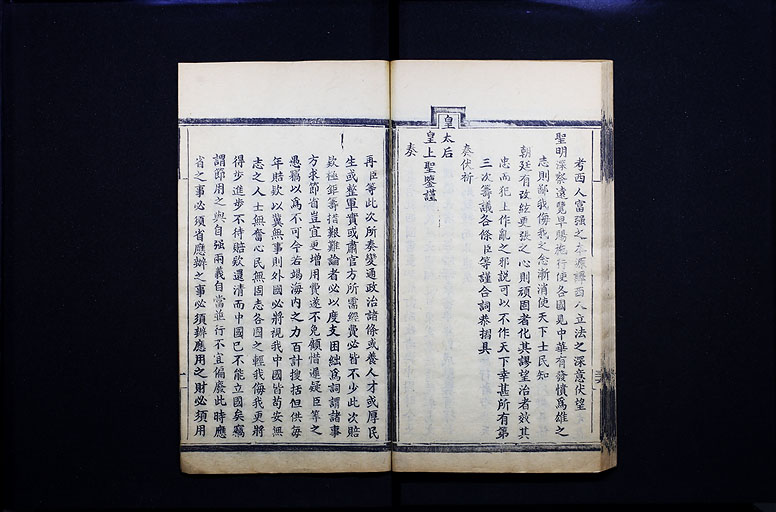 考西人富强之本源繹西人立法之深意伏望
聖明深察遠覽早賜施行使各國見中華有發憤爲雄之
志則鄙我侮我之念漸消使天下士民知
朝廷有改絃更張之心則頑固者化其謬望治者效其
忠而犯上作亂之邪說可以不作天下幸甚所有第
三次籌議各條臣等謹合詞恭摺具
奏伏祈
皇太后
皇上聖鑒謹
奏
再臣等此次所奏變通政治諸條或養人才或厚民
生或整軍實或肅官方所需經費必皆不少此次賠
欵極鉅籌措艱難論者必以度支困絀爲詞謂諸事
方求節省豈宜更增用費遂不免顧惜遲疑臣等之
愚竊以爲不可今若竭海内之力百計搜括但供每
年賠欵以冀無事則外國必將視我中國皆苟安無
志之人士無奮心民無固志各國之輕我侮我更將
得步進步不待賠欵還清而中國已不能立國矣竊
謂節用之與自强兩義自當並行不宜偏廢此時應
省之事必須省應辦之事必須辦應用之財必須用